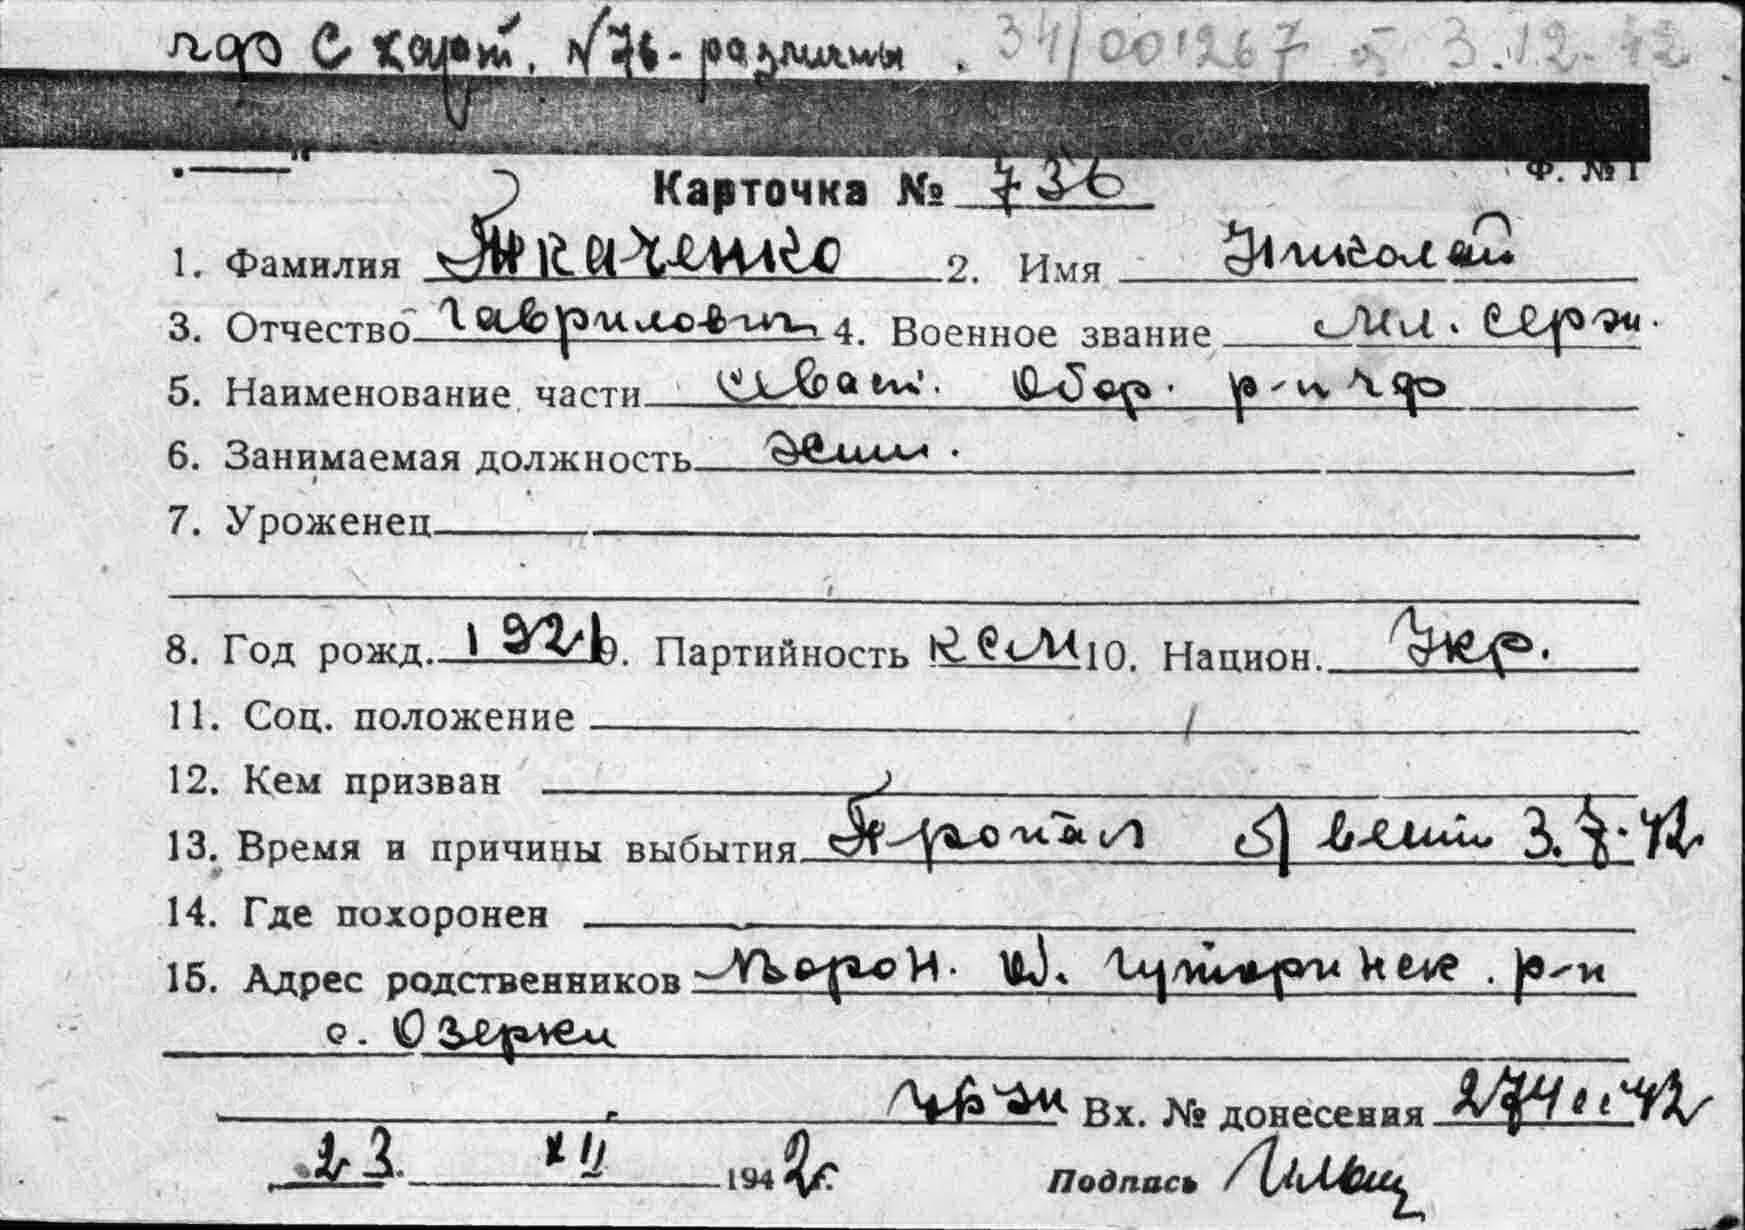 чдф С карт. №76 - различны . 34/001267 от 3.12.42
Ф. № 1
Карточка № 736
1. Фамилия Ткаченко 2. Имя Николай
3. Отчество Гаврилович 4. Военное звание мл. серж.
5. Наименование части Сиваст. Обор. р-н чф
6. Занимаемая должность
7. Уроженец
8. Год рожд. 1921 9. Партийность ксм 10. Национ. Укр.
11. Соц. положение
12. Кем призван
13. Время и причины выбытия Пропал б/вести 3.7.42
14. Где похоронен
15. Адрес родственников Ворон. Об. Гуторинск. р-н
с. Озерки
Вх. № донесения 274сс 42
23. XII 1942г.
Подпись